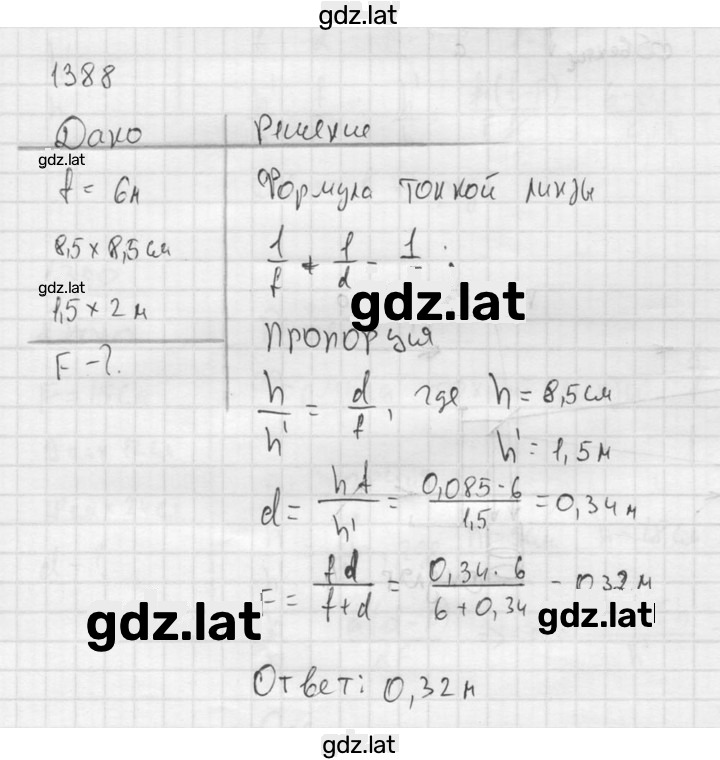 gdz.lat
1388
Дано
Решение
gdz.lat
f = 6м
Формула тонкой линзы
8,5 × 8,5 см
1/f + 1/d = 1
gdz.lat
gdz.lat
1,5 × 2 м
Пропорция
F - ?
h/h' = d/f, где h = 8,5 см
h' = 1,5 м
d = hf/h' = 0,085 · 6/1,5 = 0,34 м
F = fd/f+d = 0,34 · 6/6 + 0,34 - 0,32 м
gdz.lat
gdz.lat
Ответ: 0,32 м
gdz.lat